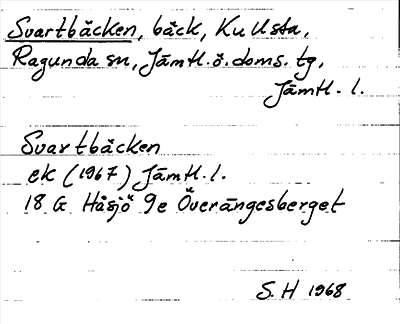 Svartbäcken, bäck, Kullsta,
Ragunda sn, Jämtl. ö. doms. tg,
Jämtl. l.
Svartbäcken
ek (1967) Jämtl. l.
18 G Håsjö 9e Överängesberget
S. H 1968